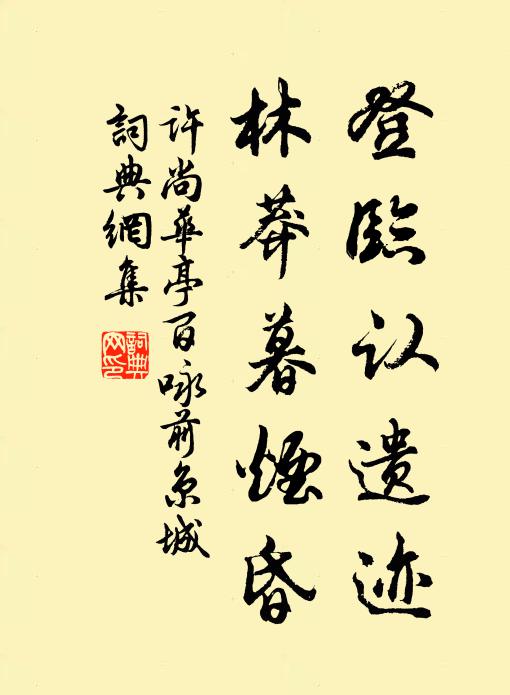 登臨认遗迹
林莽暮煙昏
许尚華亭百咏前京城
詞典網集
詞典网印